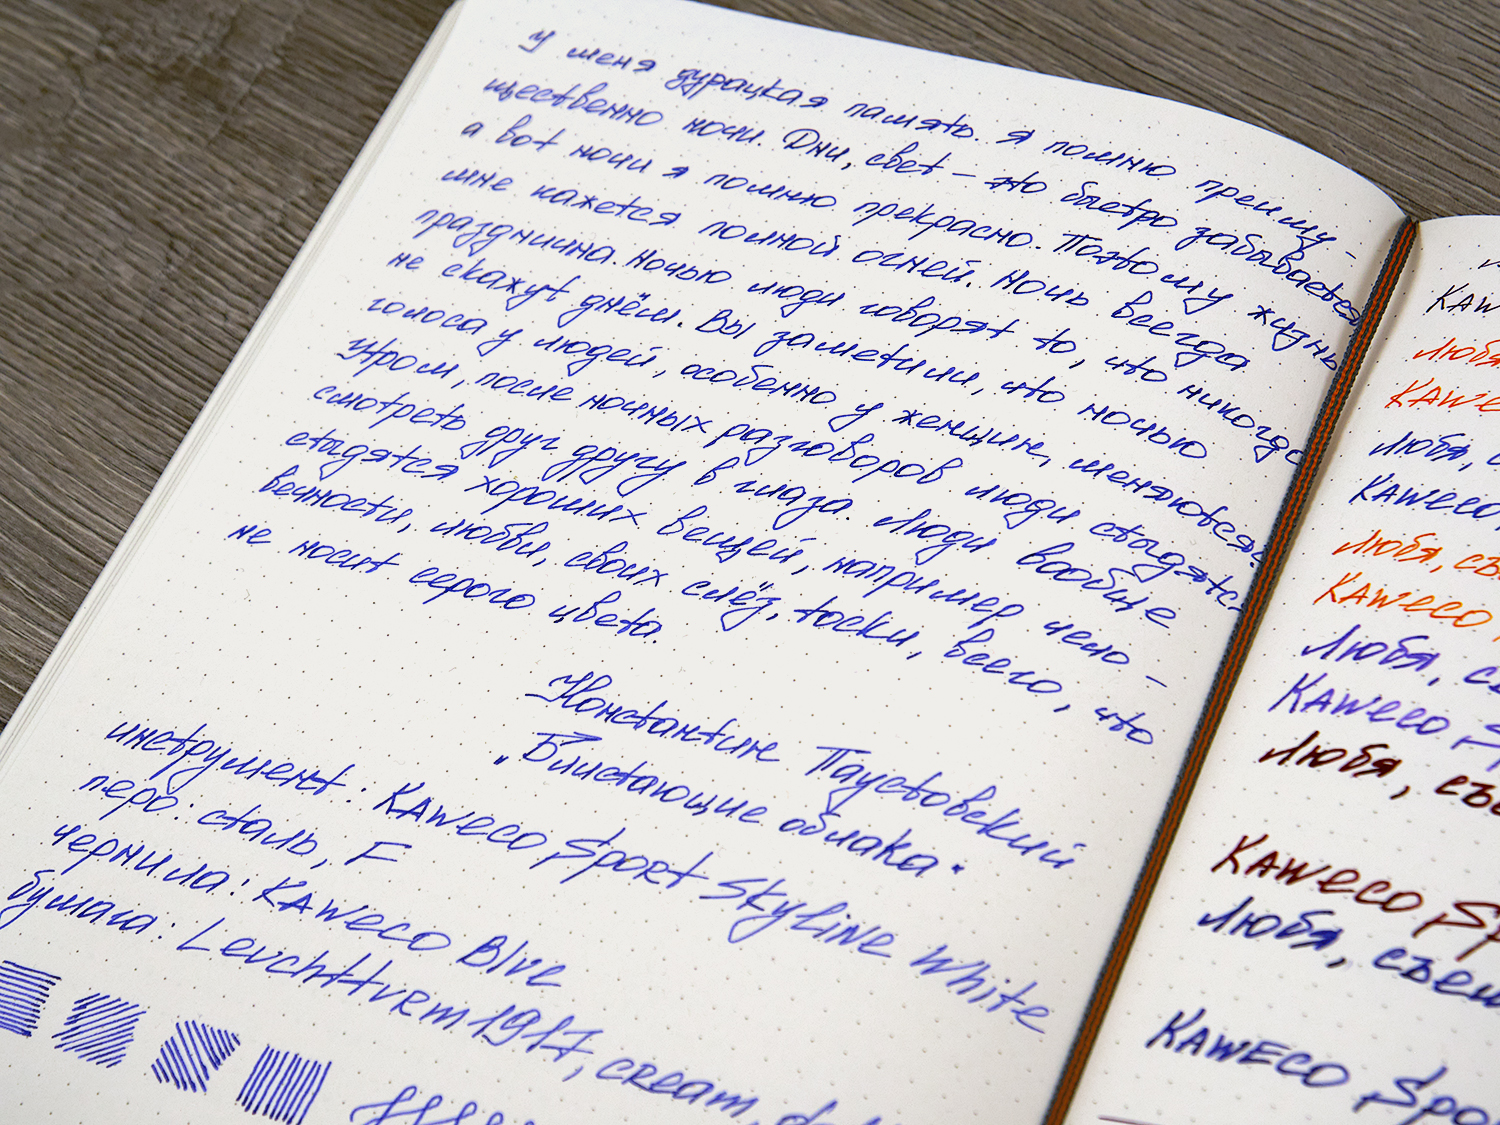 У меня дурацкая память. Я помню преиму-
щественно ночи. Дни, свет – это быстро забывается,
а вот ночи я помню прекрасно. Поэтому жизнь
мне кажется полной огней. Ночь всегда
празднична. Ночью люди говорят то, что никогда
не скажут днём. Вы заметили, что ночью
голоса у людей, особенно у женщин, меняются?
Утром, после ночных разговоров люди стыдятся
смотреть друг другу в глаза. Люди вообще
стыдятся хороших вещей, например чело-
вечности, любви, своих слёз, тоски, всего, что
не носит серого цвета.
Константин Паустовский
„Блистающие облака"
инструмент: Kaweco Sport Skyline White
перо: сталь, F
чернила: Kaweco Blue
бумага: Leuchtturm1917, cream,
Kaw
Любя
Kawe
Любя,
Kaweco
Любя, съ
Kaweco
Любя, с
Kaweco S
Любя, съе
Kaweco Sp
Любя, съеш
Kaweco Spo